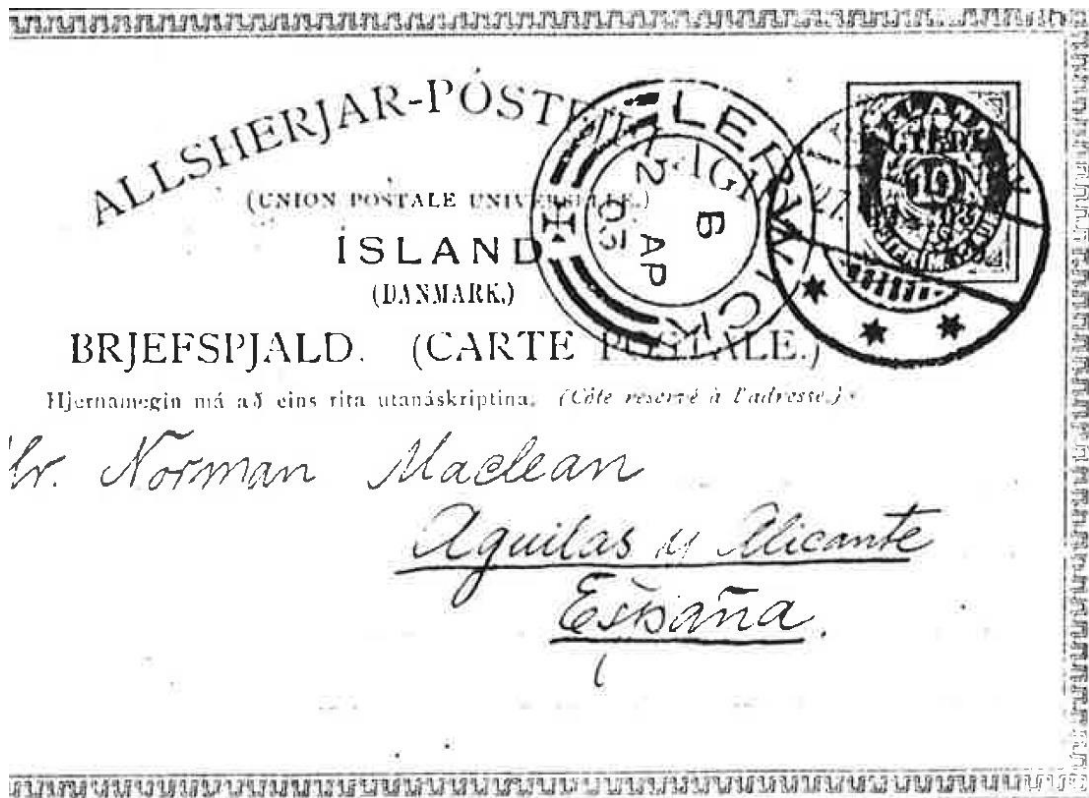 ALLSHERJAR-PÓSTFJELAGIÐ
(UNION POSTALE UNIVERSELLE.)
ÍSLAND
(DANMARK.)
BRJEFSPJALD. (CARTE POSTALE.)
Hjernamegin má að eins rita utanáskriptina. (Côté réservé à l'adresse.)
LERWICK
B
2 AP
03
GILDI
10
Hr. Norman Maclean
Aguilas y Alicante
España.